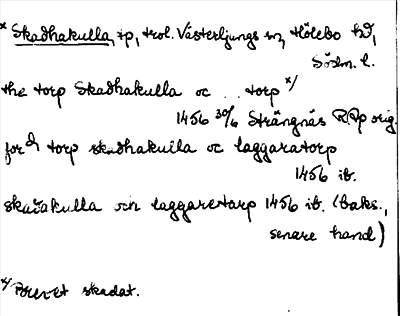 x Skadhakulla, tp, trol. Västerljungs sn, Hölebo hd,
Södm. l.
the torp Skadhakulla oc . . torp x/
1456 30/6 Strängnäs RAp orig.
ford torp skadhakulla oc laggaratorp
1456 ib.
skaðakulla och laggaretarp 1456 ib. (baks.,
senare hand)
x/ Brevet skadat.